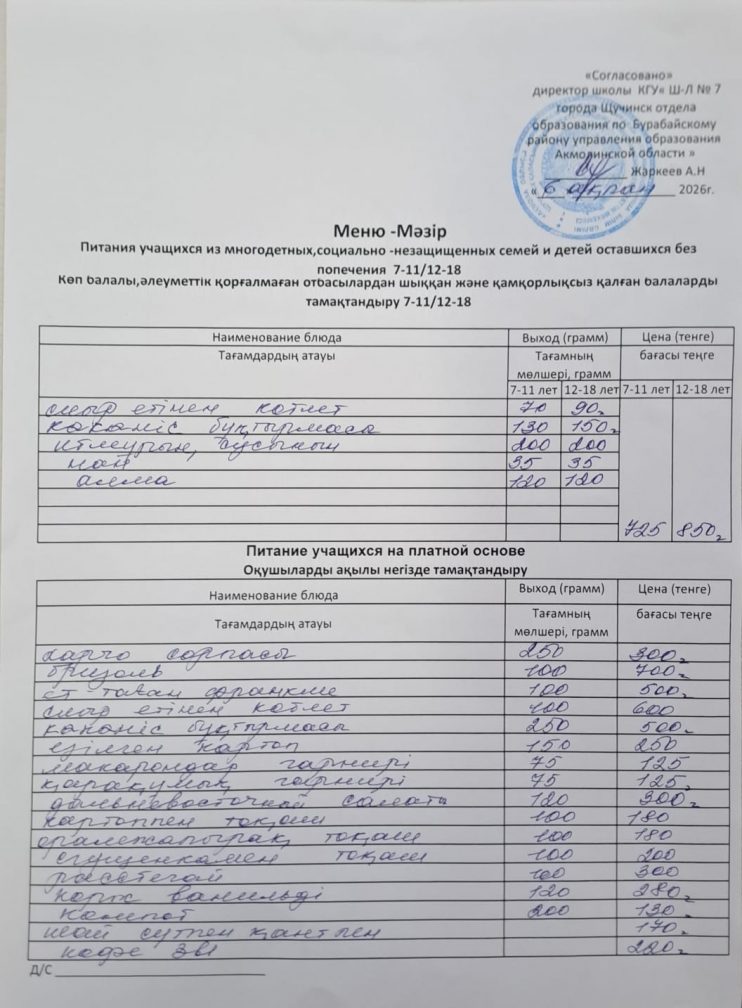 «Согласовано»
директор школы КГУ« Ш-Л № 7
города Щучинск отдела
образования по Бурабайскому
району управления образования
Акмолинской области »
Жаркеев А.Н
« 6 ақпан 2026г.
Меню -Мәзір
Питания учащихся из многодетных,социально -незащищенных семей и детей оставшихся без
попечения 7-11/12-18
Көп балалы,әлеуметтік қорғалмаған отбасылардан шыққан және қамқорлықсыз қалған балаларды
тамақтандыру 7-11/12-18
Наименование блюда Выход (грамм) Цена (тенге)
Тағамдардың атауы Тағамның мөлшері, грамм бағасы теңге
7-11 лет 12-18 лет 7-11 лет 12-18 лет
сиыр етінен котлет 70 90
көкөніс бұқтырмасы 130 150
итмұрын, сусынын 200 200
нан 35 35
алма 120 120
725 850
Питание учащихся на платной основе
Оқушыларды ақылы негізде тамақтандыру
Наименование блюда Выход (грамм) Цена (тенге)
Тағамдардың атауы Тағамның мөлшері, грамм бағасы теңге
харчо сорпасы 250 300
бризоль 100 700
ет тоған 100 500
сиыр етінен котлет 100 600
көкөніс бұқтырмасы 250 500
езілген картоп 150 250
макарондар гарнирі 75 125
қарақұмық гарнирі 75 125
дальневосточный салаты 120 300
картоппен тоқаш 100 180
орамжапырақ тоқаш 100 180
сгущенкамен тоқаш 100 200
расстегай 100 300
корж ванильді 120 280
компот 200 130
шай сүтпен қантпен 170
кофе 3в1 220
Д/С